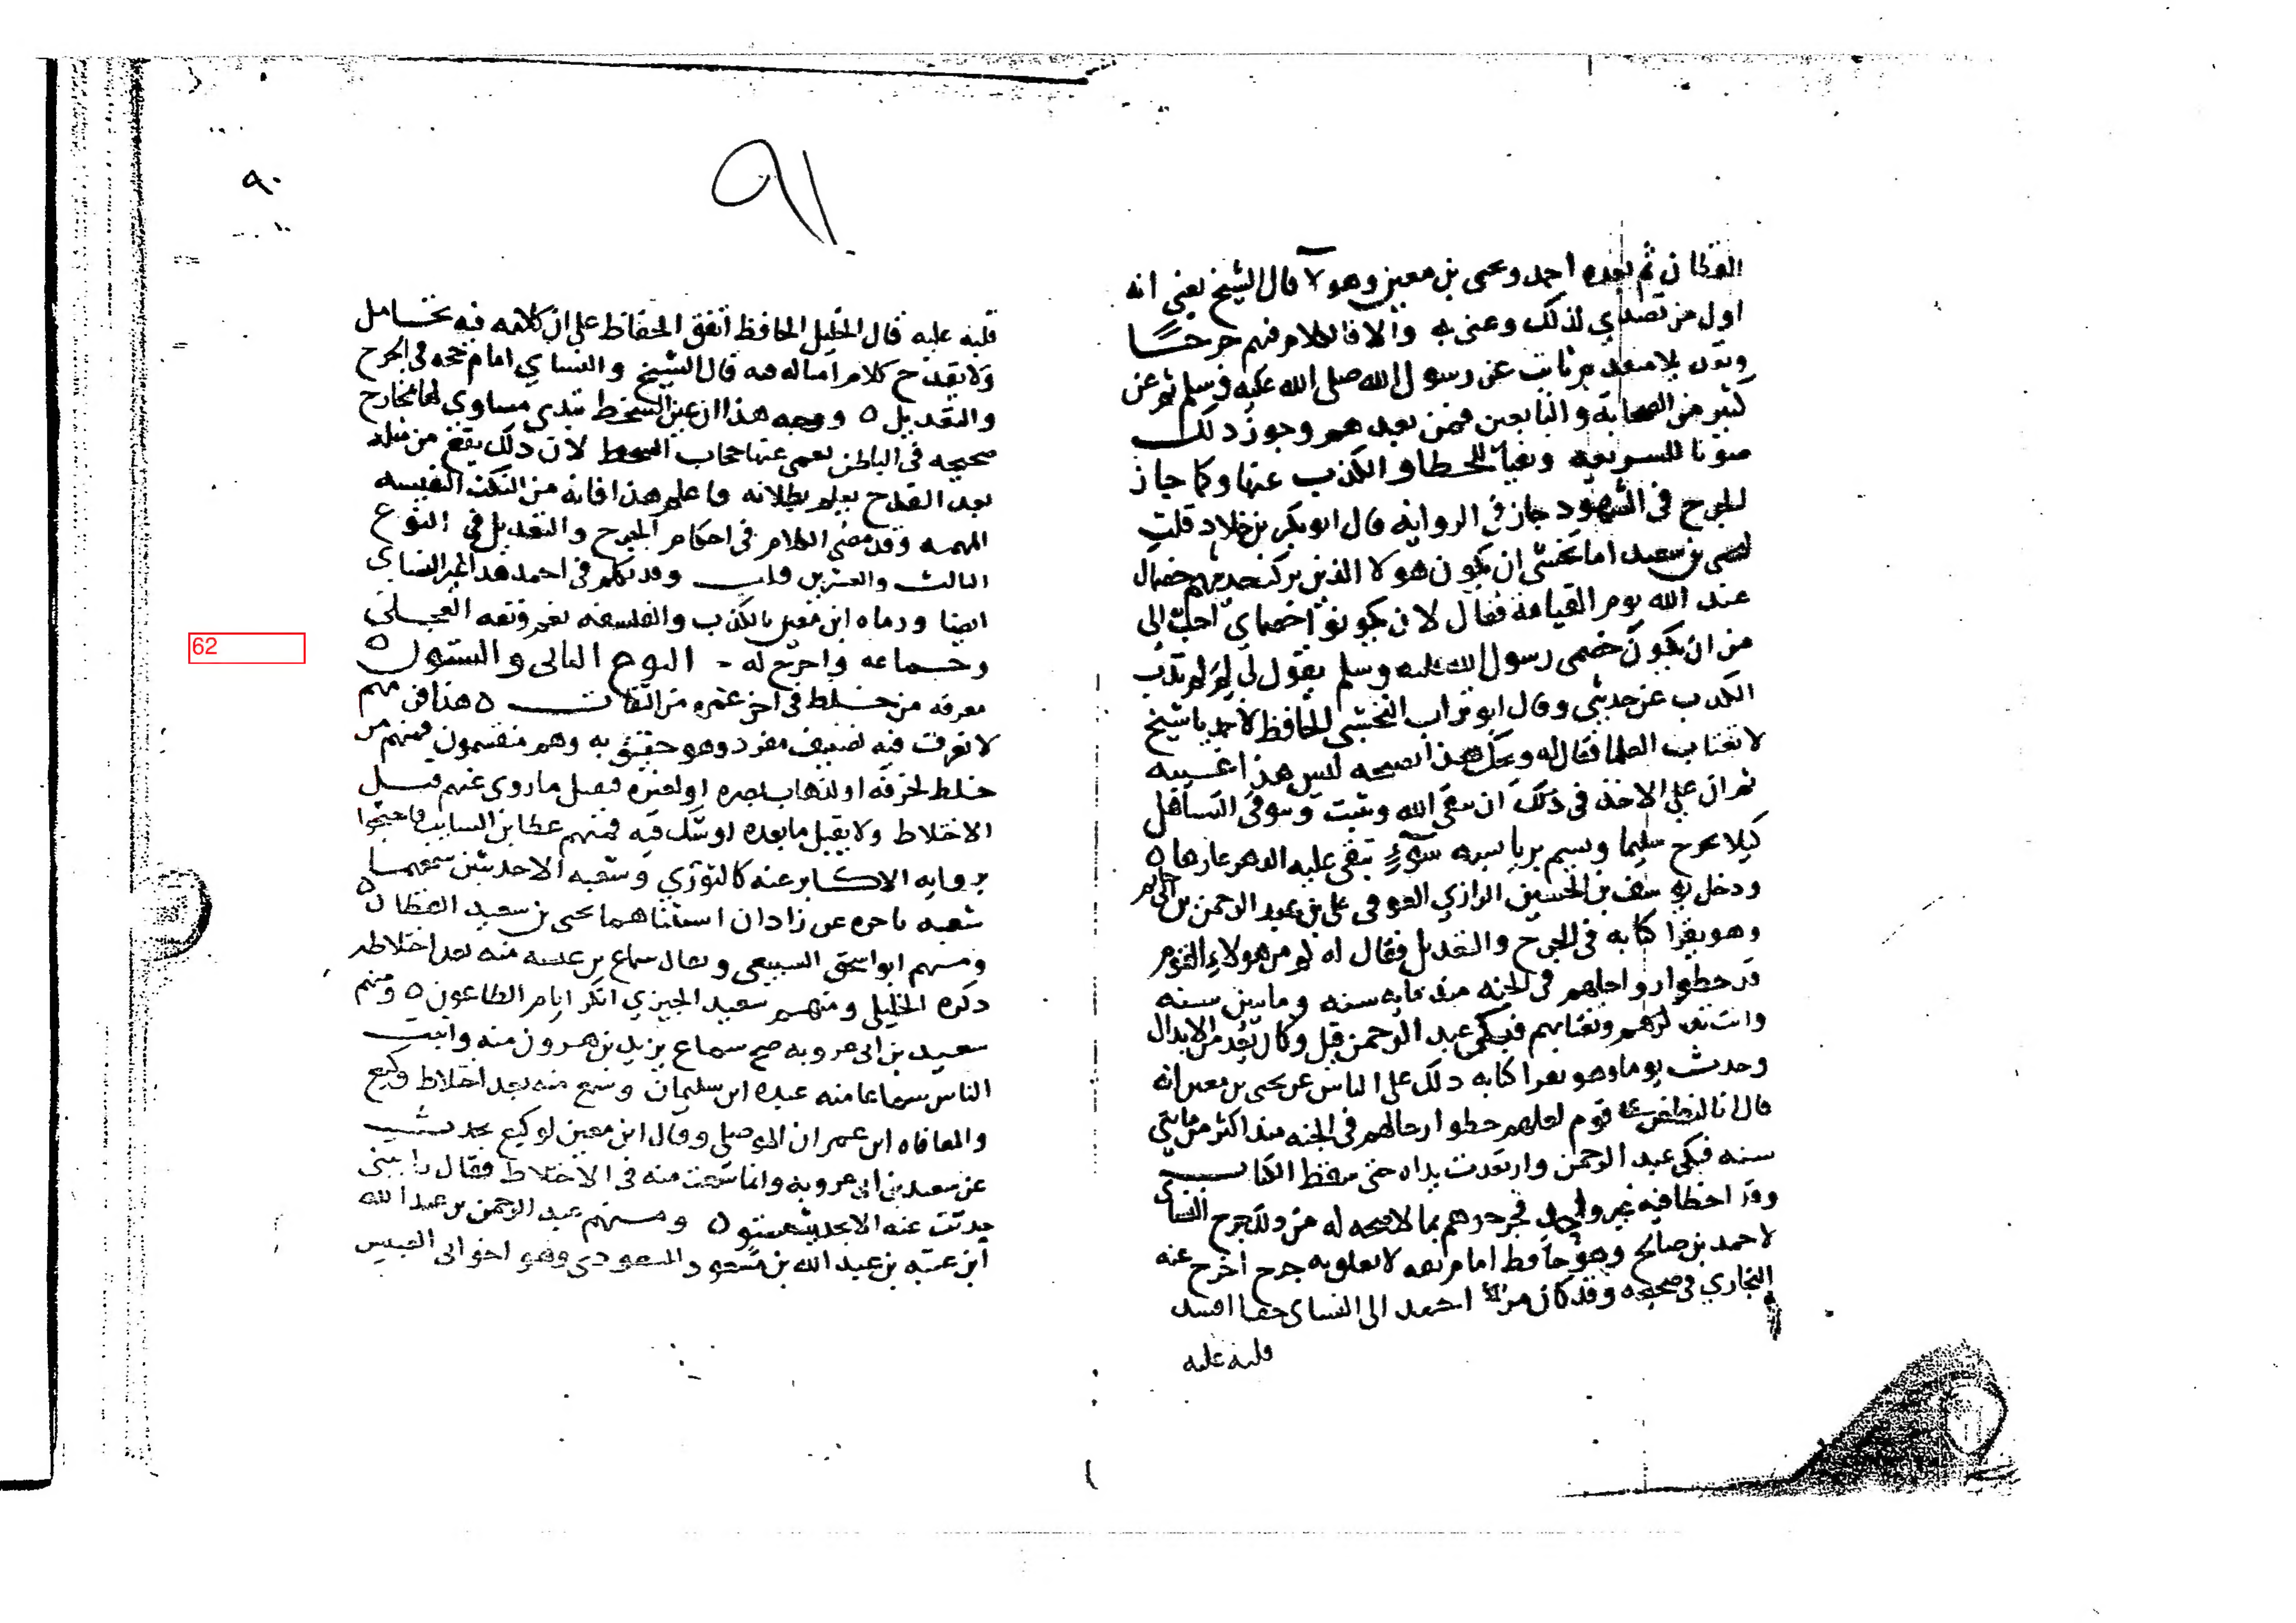 ٩١
٩٠
القطان ثم بعده احمد ويحيى بن معين وهولا قال الشيخ يعني انه
اول من تصدي لذلك وعني به والا فالكلام فيهم جرحًا
بن ثابت عن رسول الله صلى الله عليه وسلم ثم عن
كثير من الصحابة والتابعين فمن بعدهم وجوز ذلك
صونا للشريعه ونفيا للخطا والكذب عنها وكما جاز
الجرح في الشهود جاز في الروايه قال ابو بكر بن خلاد قلت
ليحيى بن سعيد اما تخشى ان يكون هولا الذين تركت حديثهم خصماك
عند الله يوم القيامة فقال لان يكونوا خصماي احب الي
من ان يكون خصمي رسول الله صلى الله عليه وسلم يقول لي لم لم تذب
الكذب عن حديثي وقال ابو تراب النخشبي الحافظ لاحمد يا شيخ
لا تغتاب العلما فقال له ويحك هذا نصيحه ليس هذا غيبه
ثم ان على الاخذ في ذلك ان يتقي الله ويثبت ويتوقى التساهل
كيلا يجرح سليما ويسم بريا بسمه سوءٍ تبقى عليه الدهر عارها ٥
ودخل يوسف بن الحسين الرازي الصوفي على بن عبد الرحمن بن ابي حاتم
وهو يقرا كتابه في الجرح والتعديل فقال له كم من هولاء القوم
قد حطوا رواحلهم في الجنه منذ مايه سنه ومايتين سنه
وانت تذكرهم وتغتابهم فبكى عبد الرحمن قيل وكان يعد من الابدال
وحدث يوما وهو يقرا كتابه ذلك على الناس عن يحيى بن معين انه
قال انا لنطعن على قوم لعلهم حطوا رحالهم في الجنه منذ اكثر من مايتي
سنه فبكى عبد الرحمن وارتعدت يداه حتى سقط الكتاب
وقد اخطا فيه غير واحد فجرحوهم بما لا صحه له من ذلك جرح النساي
لاحمد بن صالح وهو حافظ امام ثقه لا يعلق به جرح اخرج عنه
البخاري في صحيحه وقد كان من احمد الى النساي جفا افسد
قلبه عليه
قلبه عليه قال الخليل الحافظ اتفق الحفاظ على ان كلامه فيه تحامل
ولا يقدح كلام امثاله فيه قال الشيخ والنساي امام حجه في الجرح
والتعديل ٥ ووجه هذا ان عين السخط تبدي مساوي لها مخارج
صحيحه في الباطن تعمى عنها حجاب السخط لا ان ذلك يقع من مثله
تعمد القدح يعلم بطلانه فاعلم هذا فانه من النكت النفيسه
المهمه وقد مضى الكلام في احكام الجرح والتعديل في النوع
الثالث والعشرين قلت وقد تكلم في احمد هذا غير النساي
ايضا ورماه ابن معين بالكذب والفلسفه نعم وثقه العجلي
وجماعه واخرج له - النوع الثاني والستون ٥
معرفه من خلط في اخر عمره من الثقات ٥ هذا فن مهم
لا نعرف فيه تصنيف مفرد وهو حقيق به وهم منقسمون فمنهم من
خلط لخرفه او لذهاب بصره او لغيره فيقبل ما روي عنهم قبل
الاختلاط ولا يقبل ما بعده او شك فيه فمنهم عطا بن السايب فاحتجوا
بروايه الاكابر عنه كالثوري وشعبه الا حديثين سمعهما
شعبه باخره عن زادان استثناهما يحيى بن سعيد القطان ٥
ومنهم ابو اسحق السبيعي ويقال سماع بن عيينه منه بعد اختلاطه
ذكره الخليلي ومنهم سعيد الجريري انكر ايام الطاعون ٥ ومنهم
سعيد بن ابي عروبه صح سماع يزيد بن هرون منه واثبت
الناس سماعا منه عبده ابن سليمان وسمع منه بعد اختلاط وكيع
والمعافاه ابن عمران الموصلي وقال ابن معين لوكيع تحدث
عن سعيد بن ابي عروبه وانما سمعت منه في الاختلاط فقال رايتني
حدثت عنه الا بحديث مستو ٥ ومنهم عبد الرحمن بن عبد الله
ابن عتبه بن عبد الله بن مسعود المسعودي وهو اخو ابي العميس
62